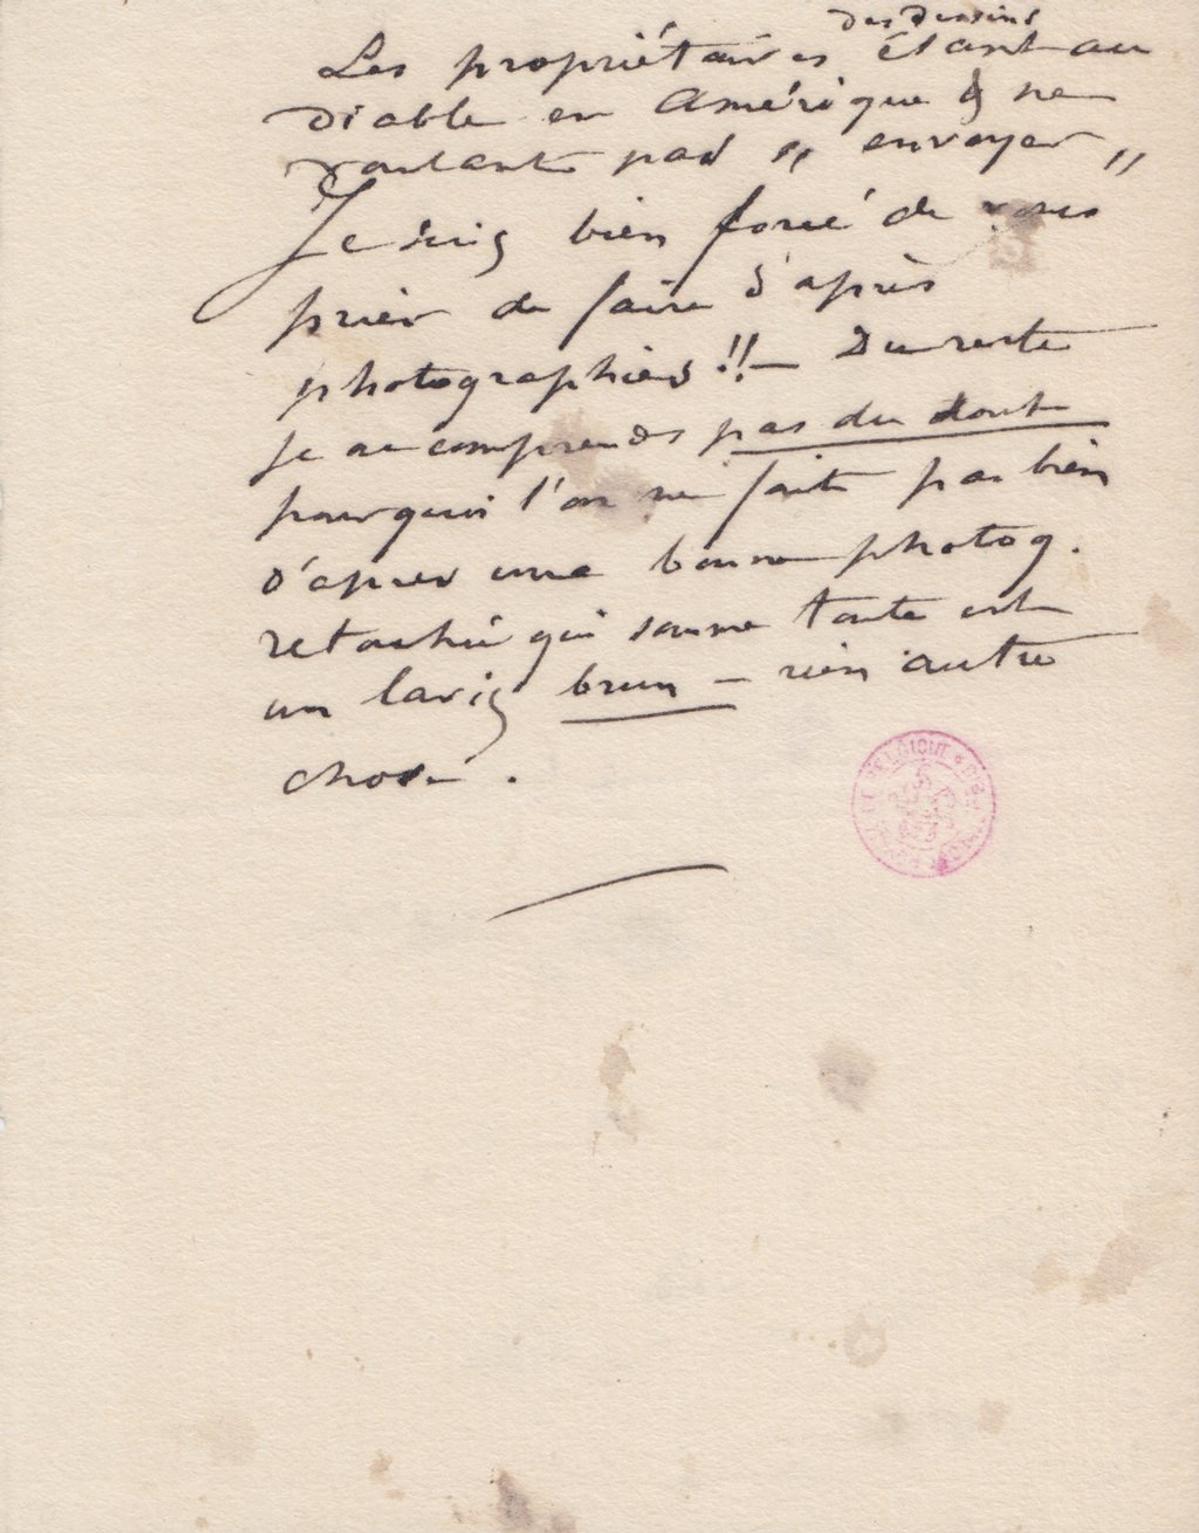 des dessins
Les propriétaires étant au
Diable en Amérique & ne
voulant pas " envoyer "
Je suis bien forcé de vous
prier de faire d'après
photographies !! — Du reste
je ne comprends pas du tout
pourquoi l'on ne fait pas bien
d'apres une bonne photog.
retouchée qui somme toute est
un lavis brun — rien autre
chose.
BELGIQUE